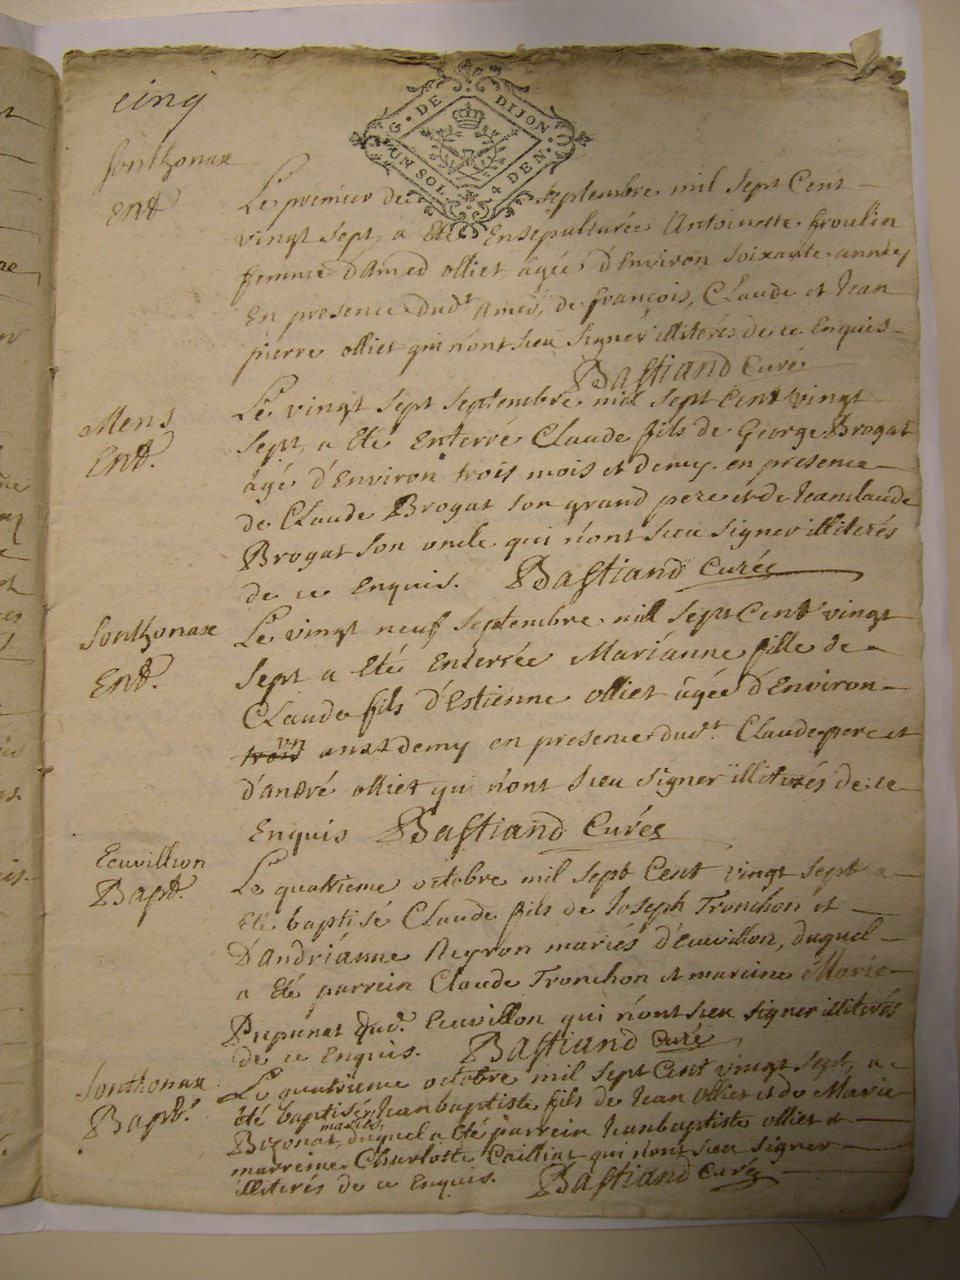 cinq
G. DE DIJON.
UN SOL 4 DEN.
Sonthonax
Ent.
Le premier de septembre mil sept Cent
vingt sept, a Eté Ensepulturée Antoinette froulin
femme d'Amed olliet âgée d'Environ soixante années
En presence dudt Amed, de françois, Claude et Jean
pierre olliet qui n'ont sceu signer illiterés de ce Enquis
Bastiand Curé
Mens
Ent.
Le vingt sept septembre mil sept Cent vingt
sept, a Eté Enterré Claude fils de George Brogat
âgé d'Environ trois mois et demy en presence
de Claude Brogat son grand pere et de Jeanclaude
Brogat son oncle qui n'ont sceu signer illiterés
de ce Enquis. Bastiand Curée
Sonthonax
Ent.
Le vingt neuf septembre mil sept Cent vingt
sept a Eté Enterrée Mariánne fille de
Claude fils d'Estienne olliet âgée d'Environ
vn
trois an et demy en presence dudt. Claude pere et
d'andré olliet qui n'ont sceu signer illiterés de ce
Enquis Bastiand Curée
Ecuvillion
Bapt.
Le quatrieme octobre mil sept Cent vingt sept a
Eté baptisé Claude fils de Joseph Tronchon et
D'andriánne Neyron mariés d'Ecuvillon, duquel
a Eté parrein Claude Tronchon et mareine Marie
Prepunat dud. Ecuvillon qui n'ont sceu signer illiterés
de ce Enquis. Bastiand Curé
Sonthonax
Bapt.
Le quatrieme octobre mil sept Cent vingt sept, a
été baptisé Jeanbaptiste fils de Jean olliet et de Marie
mariés
Bozonat, duquel a Eté parrein Jeanbaptiste olliet et
marreine Charlotte Cailliat qui n'ont sceu signer
illiterés de ce Enquis. Bastiand Curée